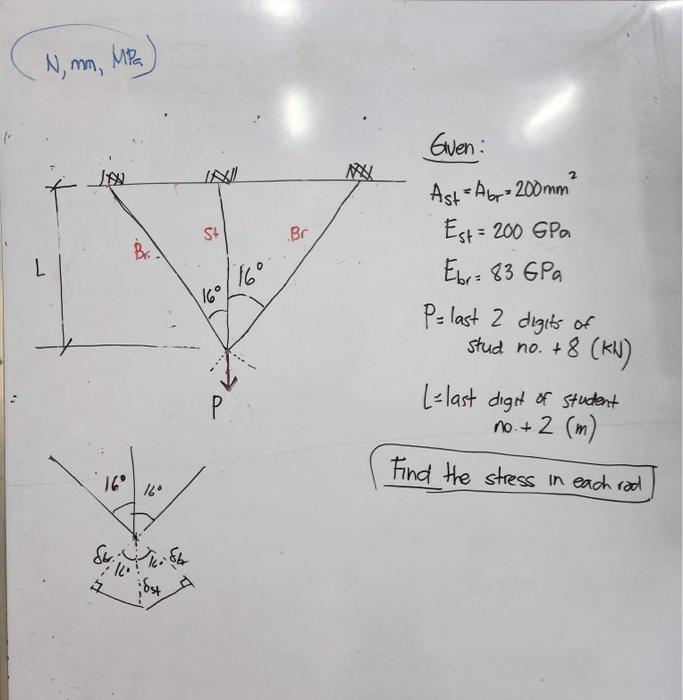 N, mm, MPa
Given:
Ast = Abr = 200mm²
Est = 200 GPa
Ebr = 83 GPa
P = last 2 digits of
stud no. + 8 (KN)
L = last digit of student
no. + 2 (m)
Find the stress in each rod
Br.
St
Br
L
16°
16°
P
16°
16°
δbr
16°
16
δbr
δst